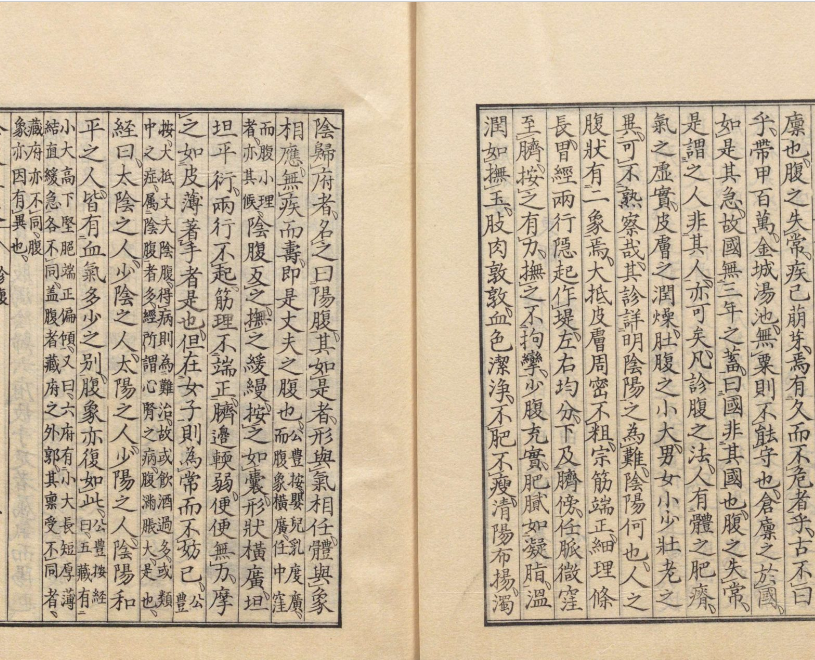 廪也腹之失常疾已萌芽焉有久而不危者乎古不曰
乎帶甲百萬金城湯池無粟則不能守也倉廪之於國
如是其急故國無三年之蓄曰國非其國也腹之失常
是謂之人非其人亦可矣凡診腹之法人有體之肥瘠
氣之虛實皮膚之潤燥肚腹之小大男女小少壯老之
異可不熟察哉其診詳明陰陽之為難陰陽何也人之
腹狀有二象焉大抵皮膚周密不粗宗筋端正細理條
長胃經兩行隱起作堤左右均分下及臍傍任脈微窪
至臍按之有力撫之不拘攣少腹充實肥膩如凝脂溫
潤如撫玉肢肉敦敦血色潔淨不肥不瘦清陽布揚濁
陰歸府者名之曰陽腹其如是者形與氣相任體與象
相應無疾而壽即是丈夫之腹也公豊按嬰兒乳度廣
而腹象橫廣任中窪
而腹小理
者亦其候陰腹反之撫之緩縵按之如囊形狀橫廣坦
坦平衍兩行不起筋理不端正臍邊輭弱便便無力摩
之如皮薄著手者是也但在女子則為常而不妨已公豊
按大抵丈夫陰腹得病則為難治故或飲酒過多或類
中之症属陰腹者多經所謂心腎之病腹滿脹大是也
經曰太陰之人少陰之人太陽之人少陽之人陰陽和
平之人皆有血氣多少之別腹象亦復如此公豊按經
曰五藏有
小大高下堅脆端正偏傾又曰六府有小大長短厚薄
結直緩急各不同盖腹者藏府之外郭其禀受不同者
藏府亦不同腹
象亦因有異也